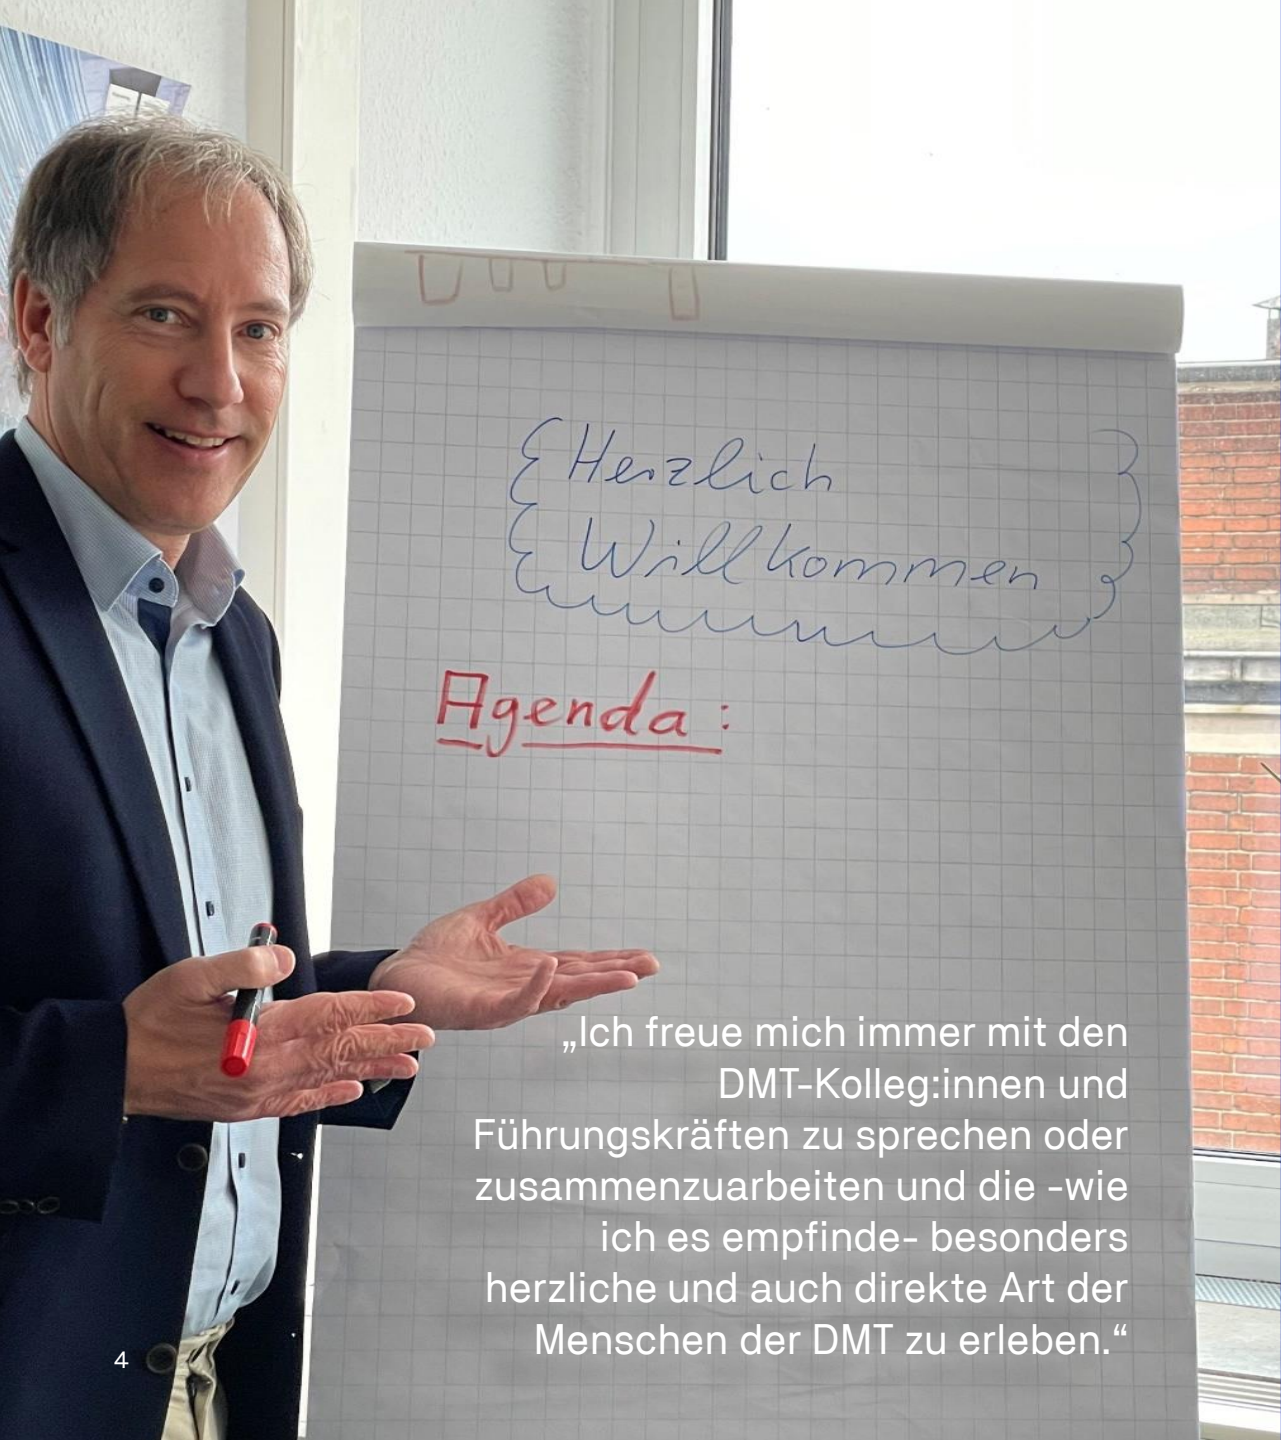 Herzlich
Willkommen
Agenda:
„Ich freue mich immer mit den
DMT-Kolleg:innen und
Führungskräften zu sprechen oder
zusammenzuarbeiten und die -wie
ich es empfinde- besonders
herzliche und auch direkte Art der
Menschen der DMT zu erleben.“
4